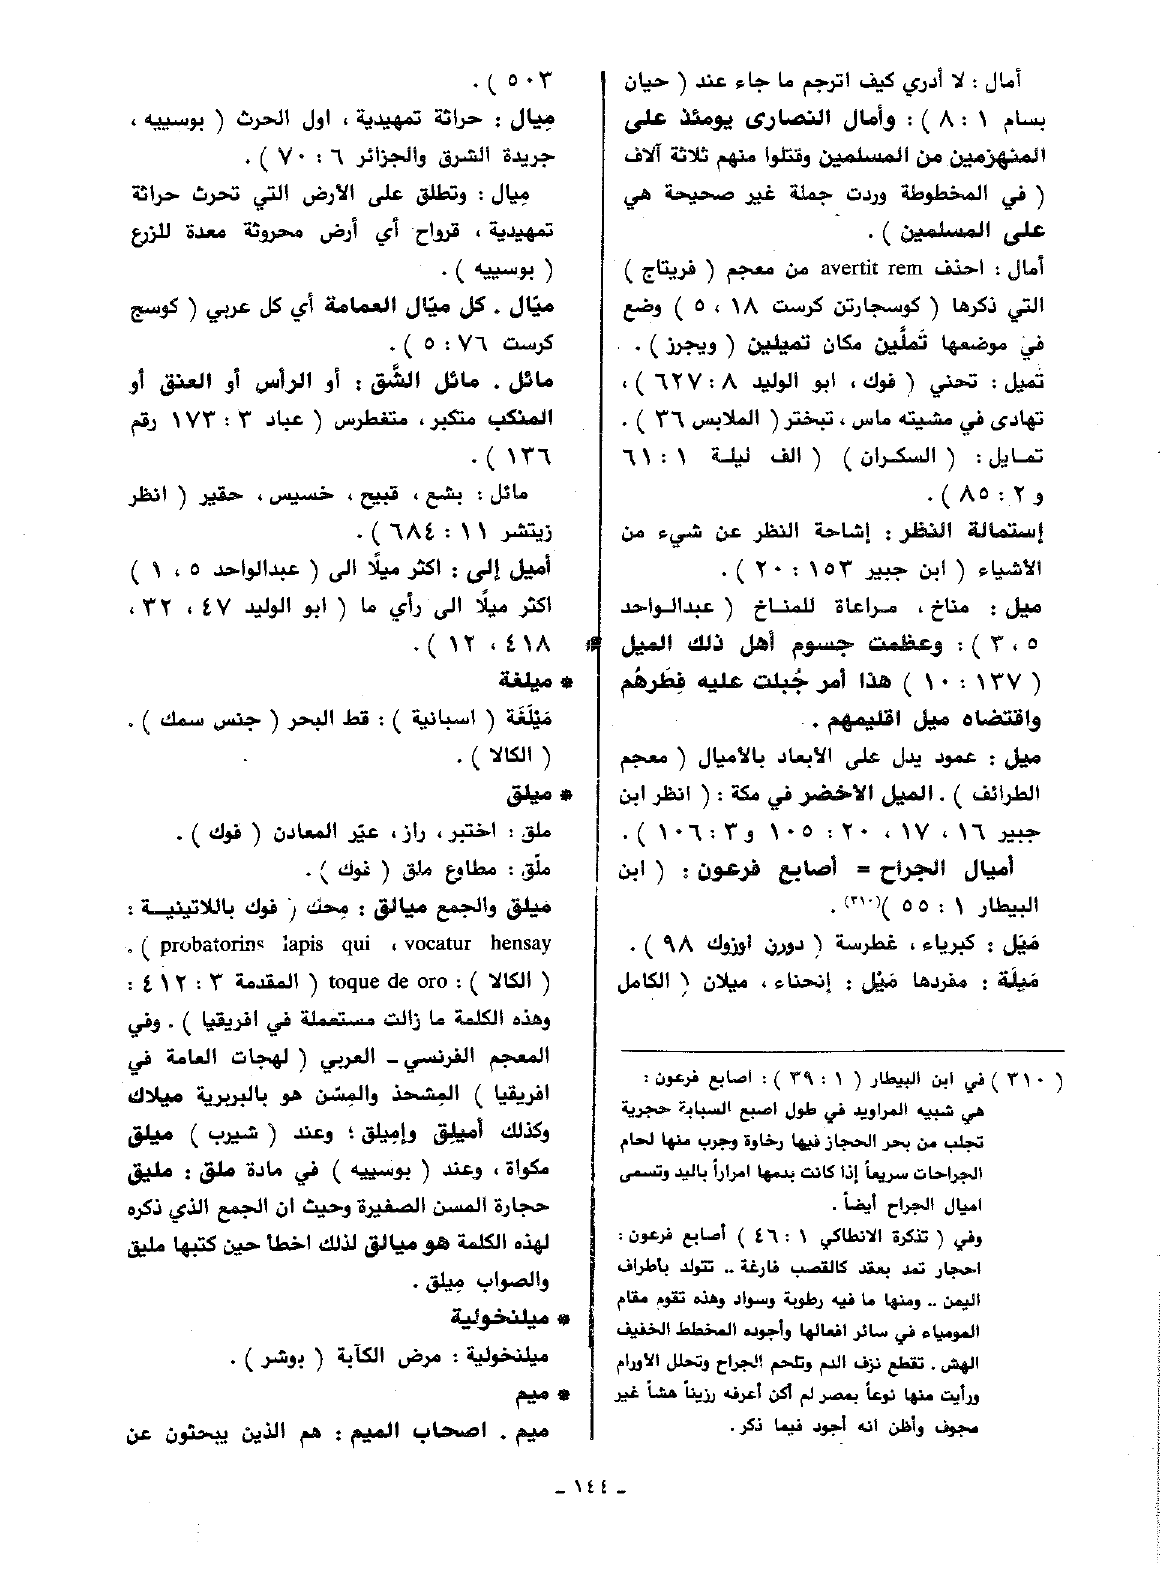 أمال : لا أدري كيف اترجم ما جاء عند ( حيان
بسام ١ : ٨ ) : وأمال النصارى يومئذ على
المنهزمين من المسلمين وقتلوا منهم ثلاثة آلاف
( في المخطوطة وردت جملة غير صحيحة هي
على المسلمين ) .
أمال : احذف avertit rem من معجم ( فريتاج )
التي ذكرها ( كوسجارتن كرست ١٨ ، ٥ ) وضع
في موضعها تَملَّين مكان تميلين ( ويجرز ) .
تَميل : تحني ( فوك ، ابو الوليد ٨ : ٦٢٧ ) ،
تهادى في مشيته ماس ، تبختر ( الملابس ٣٦ ) .
تمايل : ( السكران ) ( الف ليلة ١ : ٦١
و ٢ : ٨٥ ) .
إستمالة النظر : إشاحة النظر عن شيء من
الأشياء ( ابن جبير ١٥٣ : ٢٠ ) .
ميل : مناخ ، مراعاة للمناخ ( عبدالواحد
٥ ، ٣ ) : وعظمت جسوم أهل ذلك الميل
( ١٣٧ : ١٠ ) هذا أمر جُبلت عليه فِطَرهُم
واقتضاه ميل اقليمهم .
ميل : عمود يدل على الأبعاد بالأميال ( معجم
الطرائف ) . الميل الأخضر في مكة : ( انظر ابن
جبير ١٦ ، ١٧ ، ٢٠ : ١٠٥ و ٣ : ١٠٦ ) .
أميال الجراح = أصابع فرعون : ( ابن
البيطار ١ : ٥٥ )(٣١٠) .
مَيَل : كبرياء ، غطرسة ( دورن اوزوك ٩٨ ) .
مَيلَة : مفردها مَيْل : إنحناء ، ميلان ( الكامل
( ٣١٠ ) في ابن البيطار ( ١ : ٣٩ ) : اصابع فرعون :
هي شبيه المراويد في طول اصبع السبابة حجرية
تجلب من بحر الحجاز فيها رخاوة وجرب منها لحام
الجراحات سريعاً إذا كانت بدمها امراراً باليد وتسمى
اميال الجراح أيضاً .
وفي ( تذكرة الانطاكي ١ : ٤٦ ) أصابع فرعون :
احجار تمد بعقد كالقصب فارغة .. تتولد بأطراف
اليمن .. ومنها ما فيه رطوبة وسواد وهذه تقوم مقام
المومياء في سائر افعالها وأجوده المخطط الخفيف
الهش . تقطع نزف الدم وتلحم الجراح وتحلل الأورام
ورأيت منها نوعاً بمصر لم أكن أعرفه رزيناً هشاً غير
مجوف وأظن انه أجود فيما ذكر .
٥٠٣ ) .
مِيال : حراثة تمهيدية ، اول الحرث ( بوسييه ،
جريدة الشرق والجزائر ٦ : ٧٠ ) .
مِيال : وتطلق على الأرض التي تحرث حراثة
تمهيدية ، قرواح أي أرض محروثة معدة للزرع
( بوسييه ) .
ميّال . كل ميّال العمامة أي كل عربي ( كوسج
كرست ٧٦ : ٥ ) .
مائل . مائل الشَّق : أو الرأس أو العنق أو
المنكب متكبر ، متغطرس ( عباد ٣ : ١٧٣ رقم
١٣٦ ) .
مائل : بشع ، قبيح ، خسيس ، حقير ( انظر
زيتشر ١١ : ٦٨٤ ) .
أميل إلى : اكثر ميلًا الى ( عبدالواحد ٥ ، ١ )
اكثر ميلًا الى رأي ما ( ابو الوليد ٤٧ ، ٣٢ ،
٤١٨ ، ١٢ ) .
* ميلغة
مَيْلَغَة ( اسبانية ) : قط البحر ( جنس سمك ) .
( الكالا ) .
* ميلق
ملق : اختبر ، راز ، عيّر المعادن ( فوك ) .
ملّق : مطاوع ملق ( فوك ) .
مَيلق والجمع ميالق : مِحك ( فوك باللاتينية :
probatorins lapis qui ، vocatur hensay ) .
( الكالا ) : toque de oro ( المقدمة ٣ : ٤١٢ :
وهذه الكلمة ما زالت مستعملة في افريقيا ) . وفي
المعجم الفرنسي ـ العربي ( لهجات العامة في
افريقيا ) المِشحذ والمِسّن هو بالبربرية ميلاك
وكذلك أميلِق وإميلق ؛ وعند ( شيرب ) ميلق
مكواة ، وعند ( بوسييه ) في مادة ملق : مليق
حجارة المسن الصغيرة وحيث ان الجمع الذي ذكره
لهذه الكلمة هو ميالق لذلك اخطأ حين كتبها مليق
والصواب مِيلق .
* ميلنخولية
ميلنخولية : مرض الكآبة ( بوشر ) .
* ميم
ميم . اصحاب الميم : هم الذين يبحثون عن
ـ ١٤٤ ـ